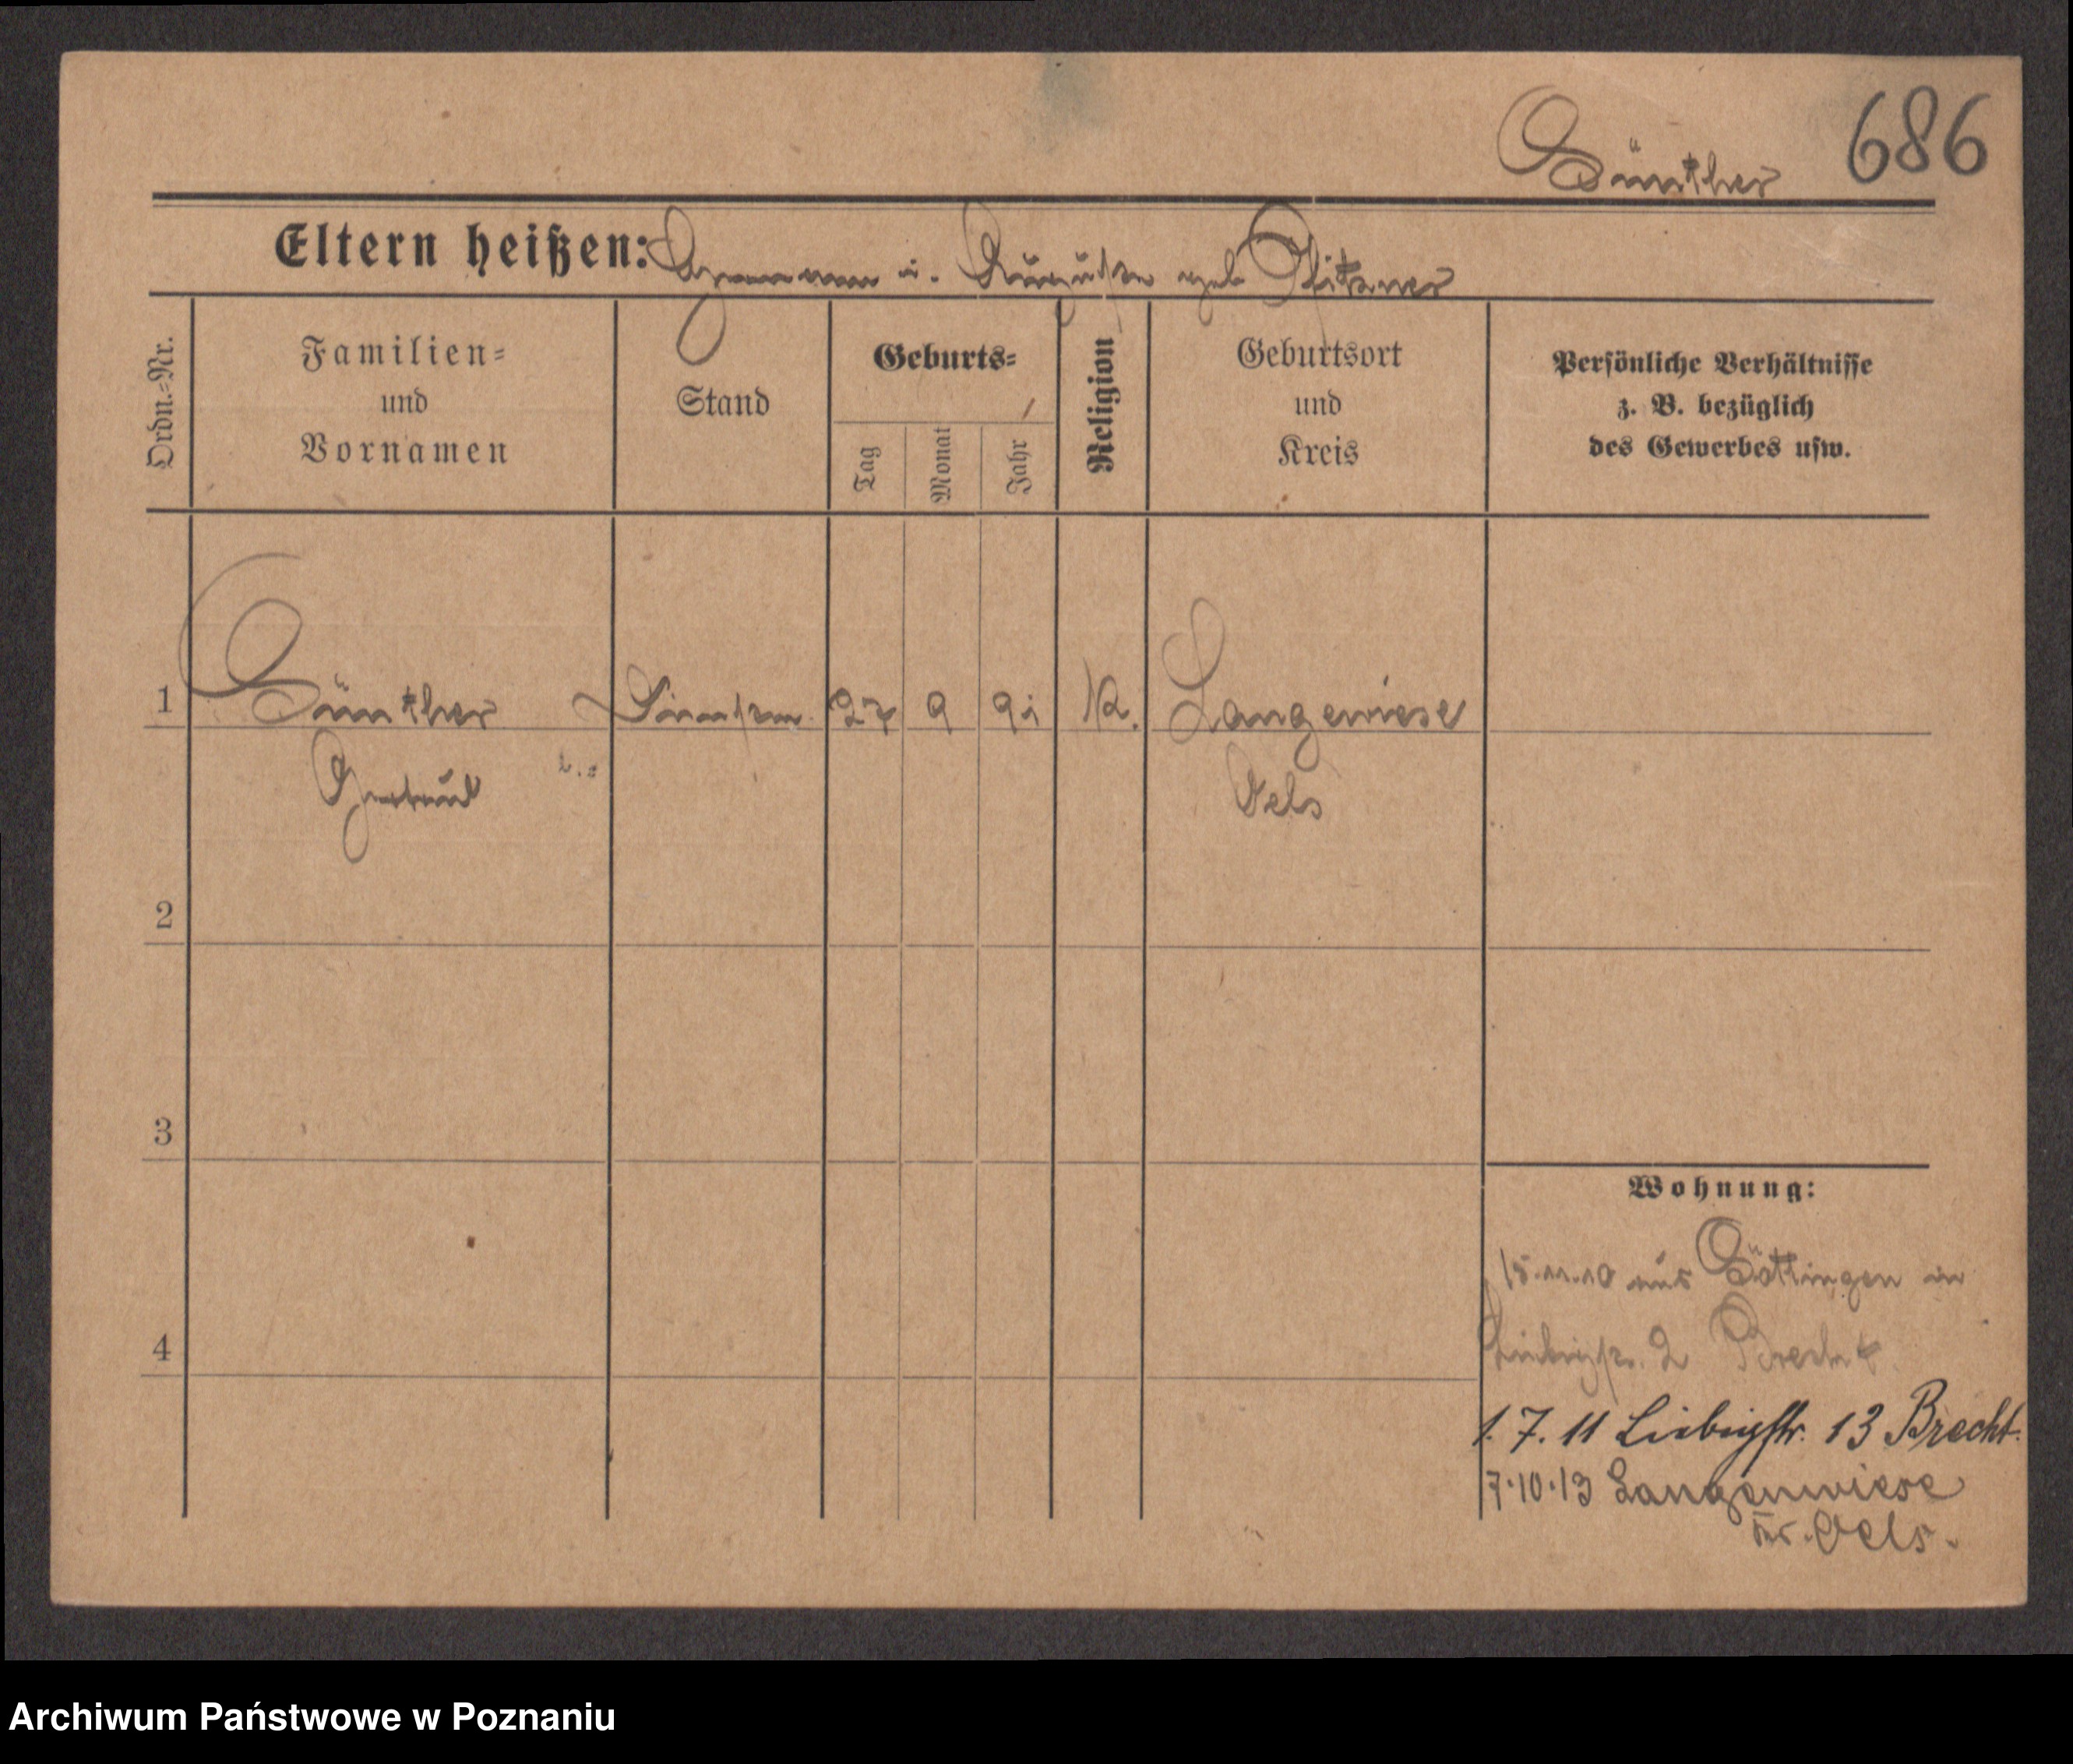 Günther 686
Eltern heißen: Hermann u. Auguste geb Pfitzner
Ordn.=Nr.
Familien=
und
Vornamen
Stand
Geburts=
Tag
Monat
Jahr
Religion
Geburtsort
und
Kreis
Persönliche Verhältnisse
z. B. bezüglich
des Gewerbes usw.
1 Günther 27 9 91 K. Langewiese
Gertrud Oels
2
3
4
Wohnung:
15.11.10 aus Göttingen in
Liebigstr. 2 Brecht
1. 7. 11 Liebigstr. 13 Brecht.
7.10.13 Langenwiese
Kr. Oels.
Archiwum Państwowe w Poznaniu